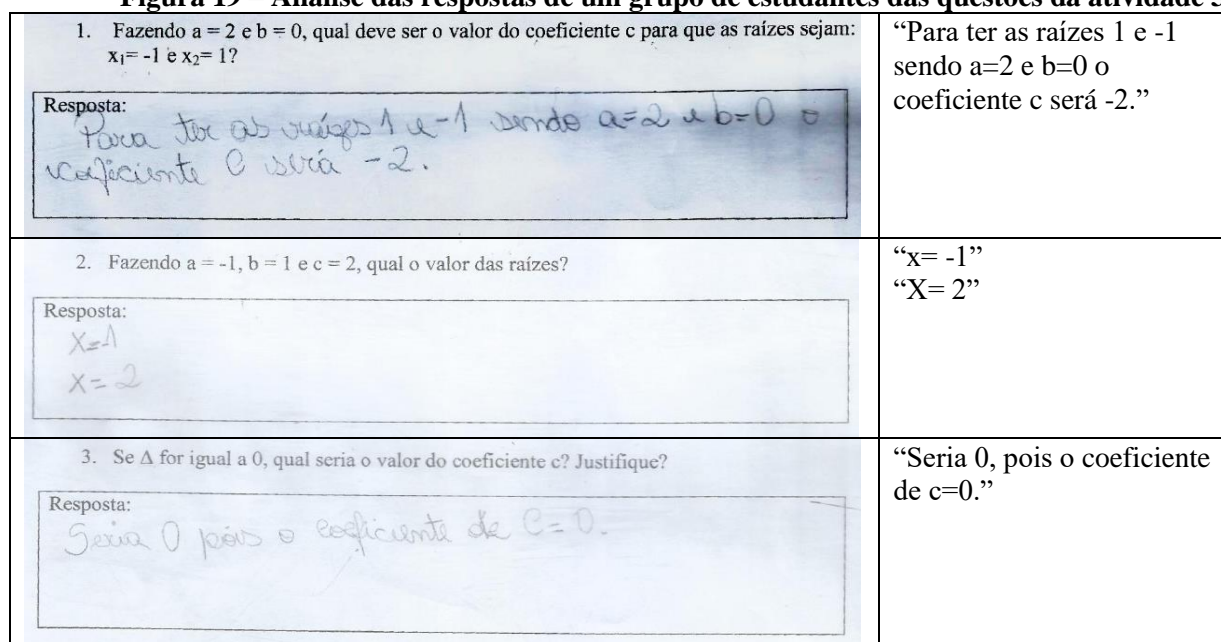 Figura 19 – Análise das respostas de um grupo de estudantes das questões da atividade 3
1. Fazendo a = 2 e b = 0, qual deve ser o valor do coeficiente c para que as raízes sejam:
x₁= -1 e x₂= 1?
Resposta:
Para ter as raízes 1 e -1 sendo a=2 e b=0 o
coeficiente C será -2.
“Para ter as raízes 1 e -1
sendo a=2 e b=0 o
coeficiente c será -2.”
2. Fazendo a = -1, b = 1 e c = 2, qual o valor das raízes?
Resposta:
X=-1
X= 2
“x= -1”
“X= 2”
3. Se Δ for igual a 0, qual seria o valor do coeficiente c? Justifique?
Resposta:
Seria 0 pois o coeficiente de C=0.
“Seria 0, pois o coeficiente
de c=0.”